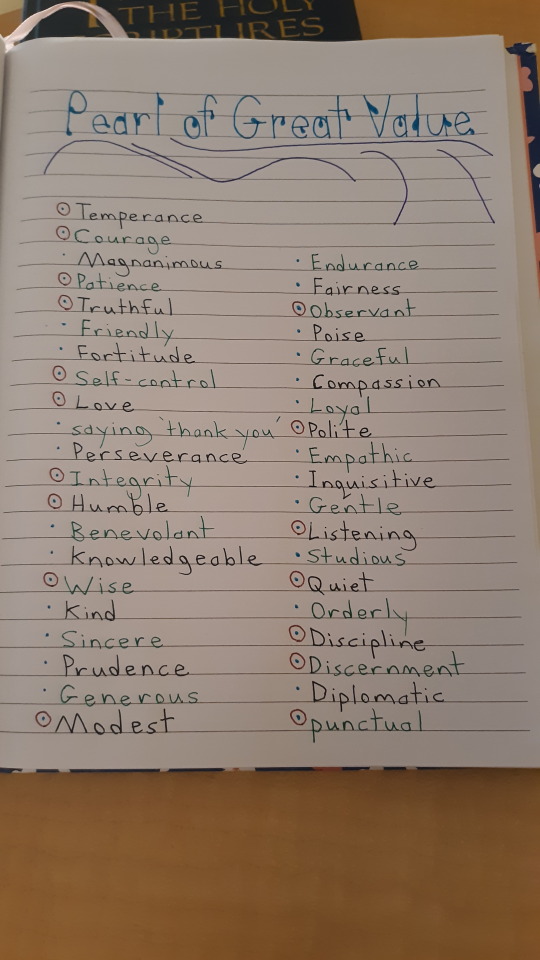 THE HOLY
SCRIPTURES
Pearl of Great Value
Temperance
Courage
Magnanimous
Patience
Truthful
Friendly
Fortitude
Self-control
Love
saying 'thank you'
Perseverance
Integrity
Humble
Benevolant
Knowledgeable
Wise
Kind
Sincere
Prudence
Generous
Modest
Endurance
Fairness
Observant
Poise
Graceful
Compassion
Loyal
Polite
Empathic
Inquisitive
Gentle
Listening
Studious
Quiet
Orderly
Discipline
Discernment
Diplomatic
punctual